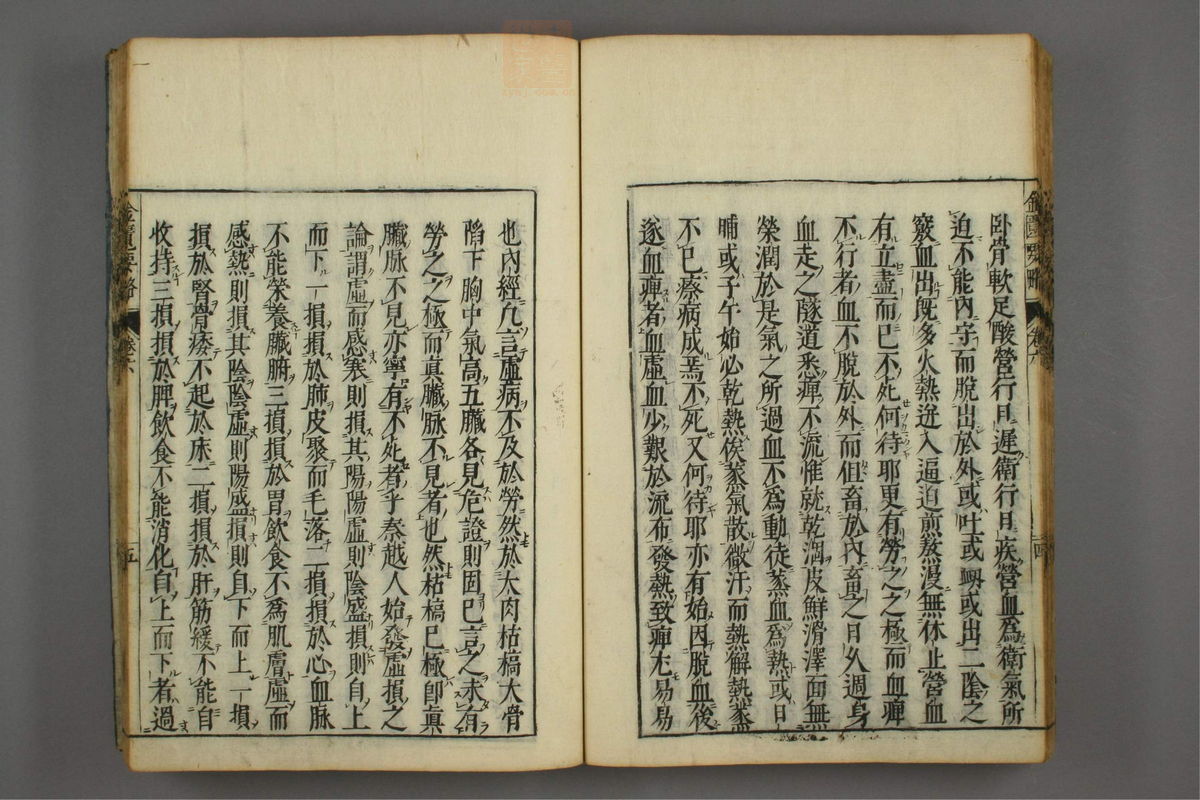 卧骨軟足酸營行日遲衛行日疾營血為衛氣所
迫不能內守而脫出於外或吐或衂或出二陰之
竅血出既多火熱迸入逼迫煎熬漫無休止營血
有立盡而已不死何待耶更有勞之之極而血痺
不行者血不脫於外而但畜於內畜之日久週身
血走之隧道悉痺不流惟就乾涸皮鮮滑澤面無
榮潤於是氣之所過血不為動徒蒸血為熱或日
晡或子午始必乾熱俟蒸氣散微汗而熱解熱蒸
不已瘵病成焉不死又何待耶亦有始因脫血後
遂血痺者血虛血少艱於流布發熱致痺尤易易
卷六
四
也內經凡言虛病不及於勞然於大肉枯槁大骨
陷下胸中氣高五臟各見危證則固巳言之未有
勞之之極而真臟脉不見者也然枯槁巳極卽真
臟脉不見亦寧有不死者乎秦越人始發虛損之
論謂虛而感寒則損其陽陽虛則陰盛損則自上
而下一損損於肺皮聚而毛落二損損於心血脉
不能榮養臟腑三損損於胃飲食不為肌膚虛而
感熱則損其陰陰虛則陽盛損則自下而上一損
損於腎骨痿不起於床二損損於肝筋緩不能自
收持三損損於脾飲食不能消化自上而下者過
金匱要略
卷六
五